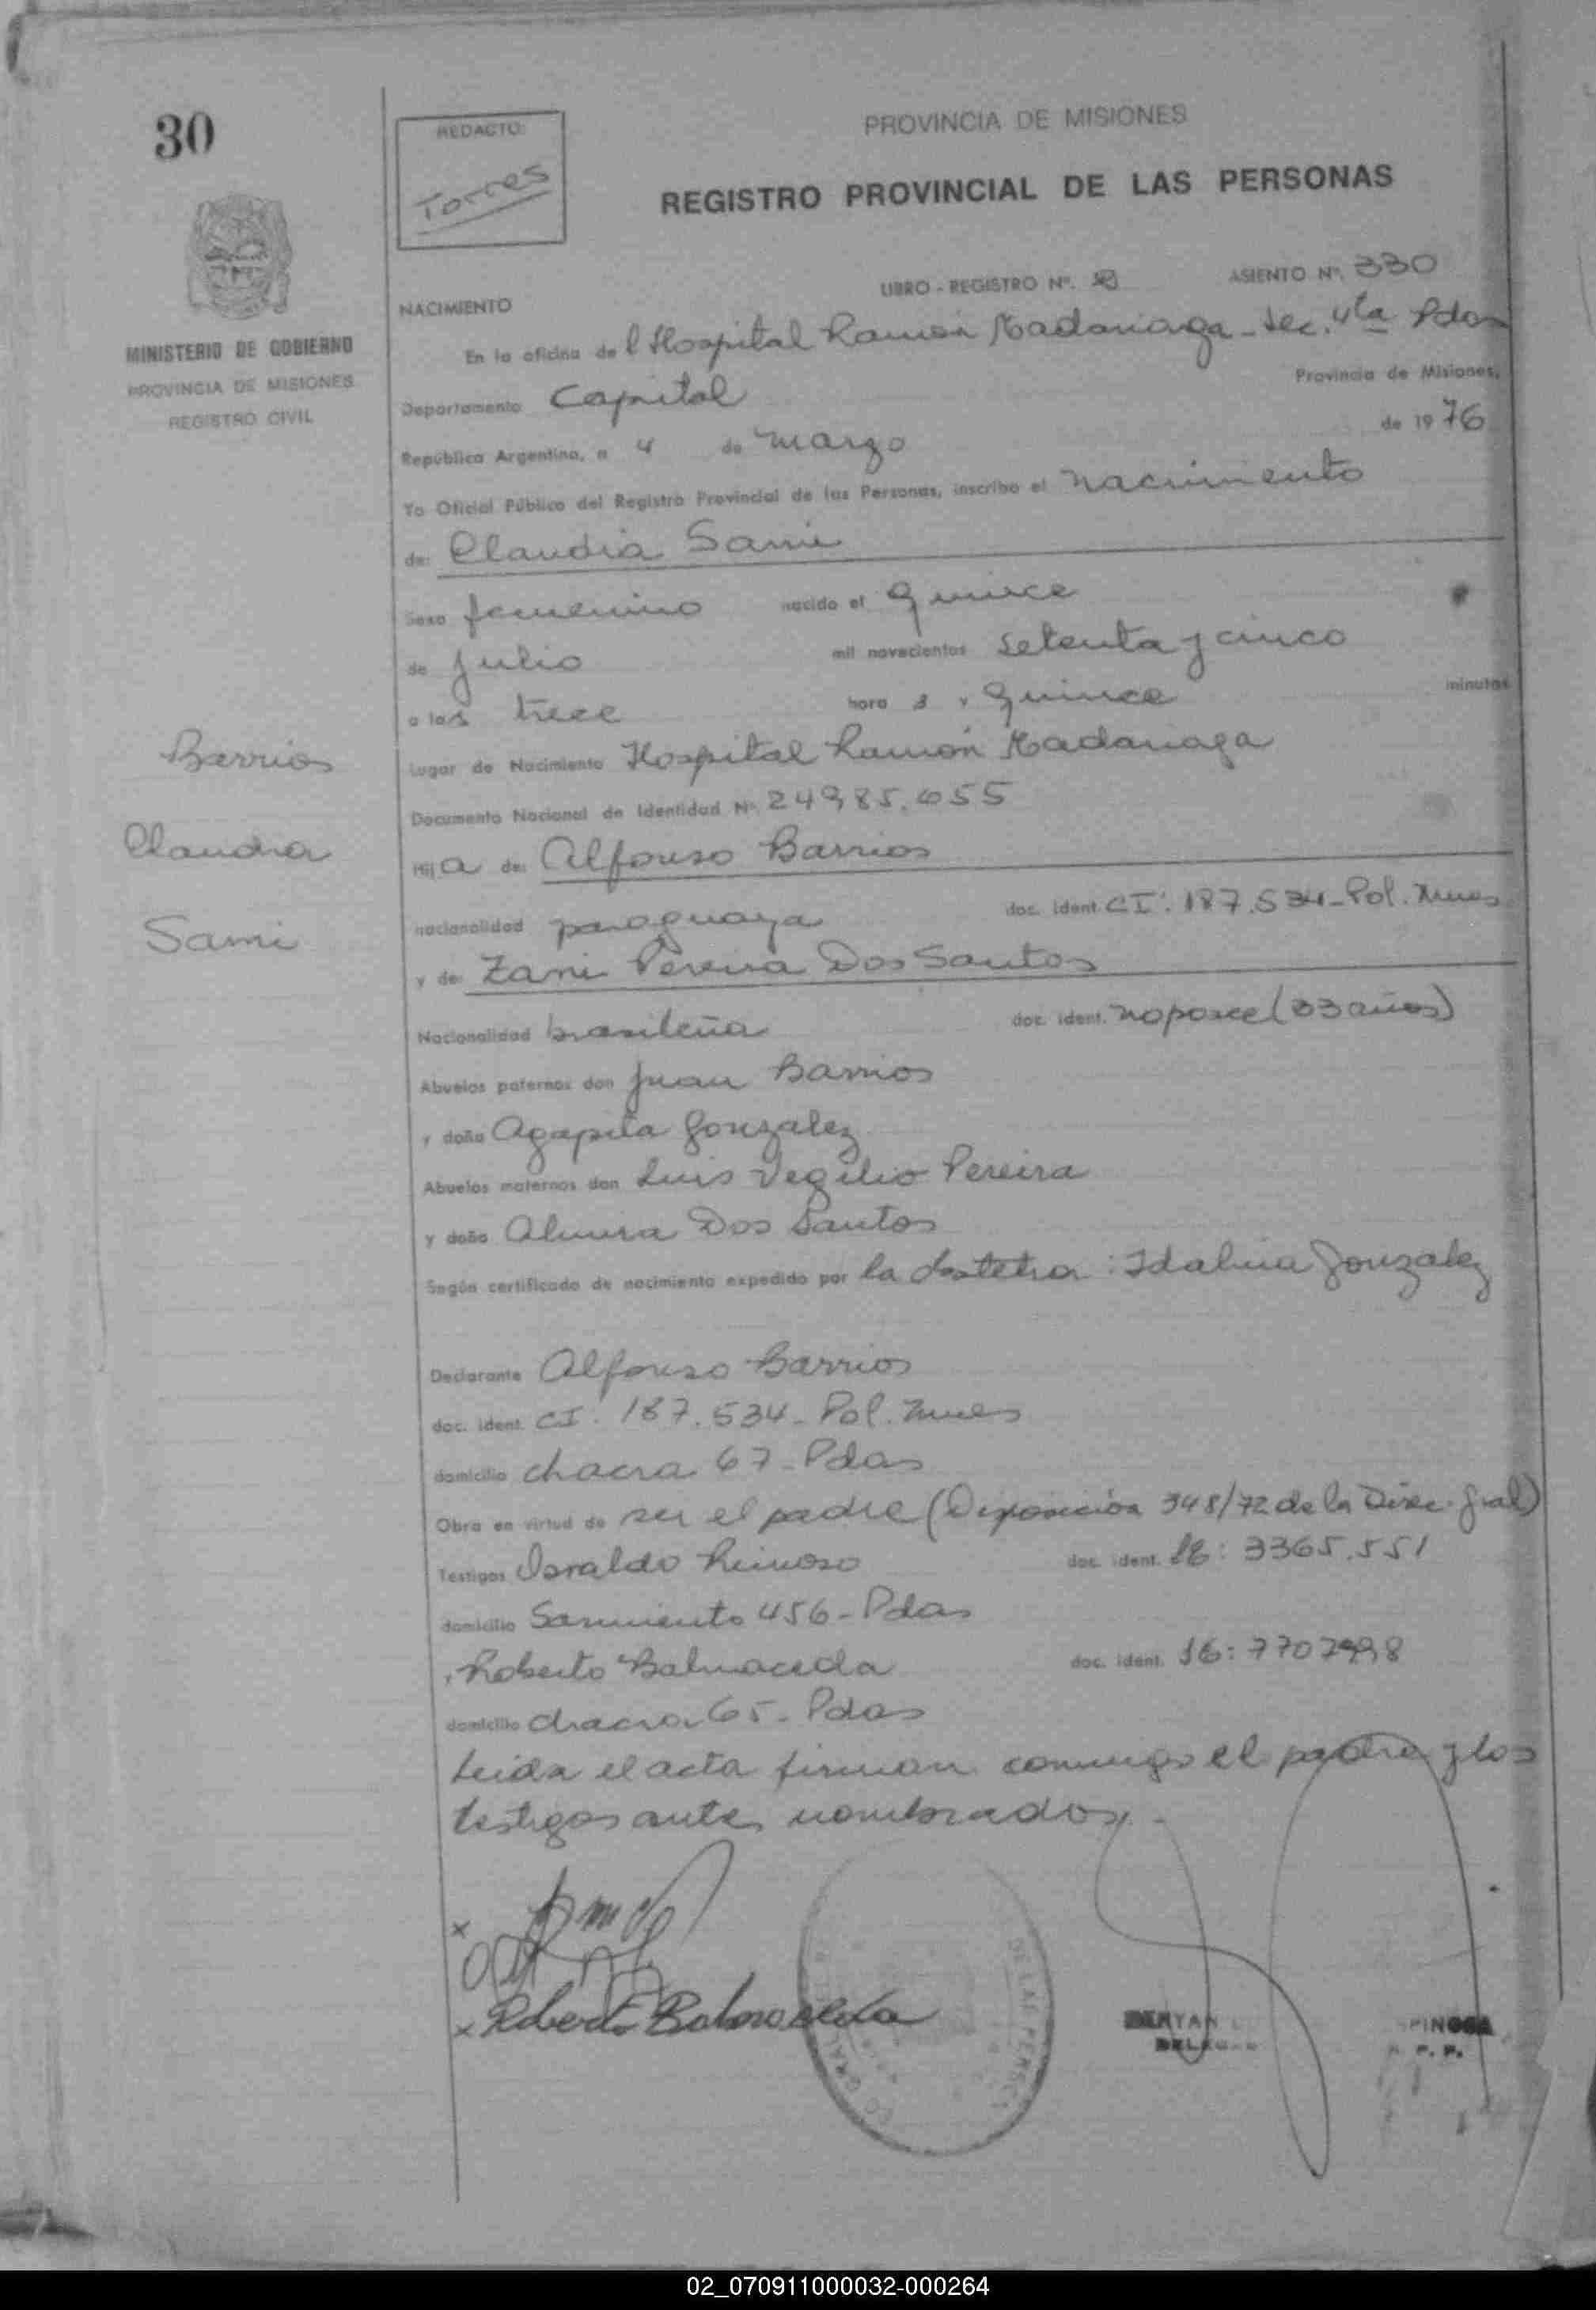 30
REDACTO:
Torres
PROVINCIA DE MISIONES
REGISTRO PROVINCIAL DE LAS PERSONAS
MINISTERIO DE GOBIERNO
PROVINCIA DE MISIONES
REGISTRO CIVIL
NACIMIENTO
LIBRO - REGISTRO Nº. ASIENTO Nº. 330
En la oficina del Hospital Ramón Madariaga - Sec. 4ta Pdas
Departamento Capital Provincia de Misiones,
República Argentina, a 4 de marzo de 1976
Yo Oficial Público del Registro Provincial de las Personas, inscribo el nacimiento
de: Claudia Sami
Sexo femenino nacido el quince
de julio mil novecientos setenta y cinco
a las trece hora s y quince minutos
Barrios
Claudia
Sami
Lugar de Nacimiento Hospital Ramón Madariaga
Documento Nacional de Identidad Nº. 24985.655
Hija de: Alfonso Barrios
nacionalidad paraguaya doc. ident. CI: 187.534 - Pol. Mnes
y de: Zani Pereira Dos Santos
Nacionalidad brasileña doc. ident. no posee (33 años)
Abuelos paternos don Juan Barrios
y doña Agapita Gonzalez
Abuelos maternos don Luis Vegilio Pereira
y doña Dos Santos
Según certificado de nacimiento expedido por la obstetra: Idalina Gonzalez
Declarante Alfonso Barrios
doc. ident. CI: 187.534 - Pol. Mnes
domicilio chacra 67 - Pdas
Obra en virtud de ser el padre (Disposición 348/72 de la Direc. Gral)
Testigos Osvaldo Reinoso doc. ident. 3365.551
domicilio Sarmiento 456 - Pdas
y Roberto Balmaceda doc. ident.
domicilio chacra 65 - Pdas
Leida el acta firman conmigo el padre y los
testigos ante nombrados.-
x
x Roberto Balmaceda
DE LAS PERSO
02_070911000032-000264